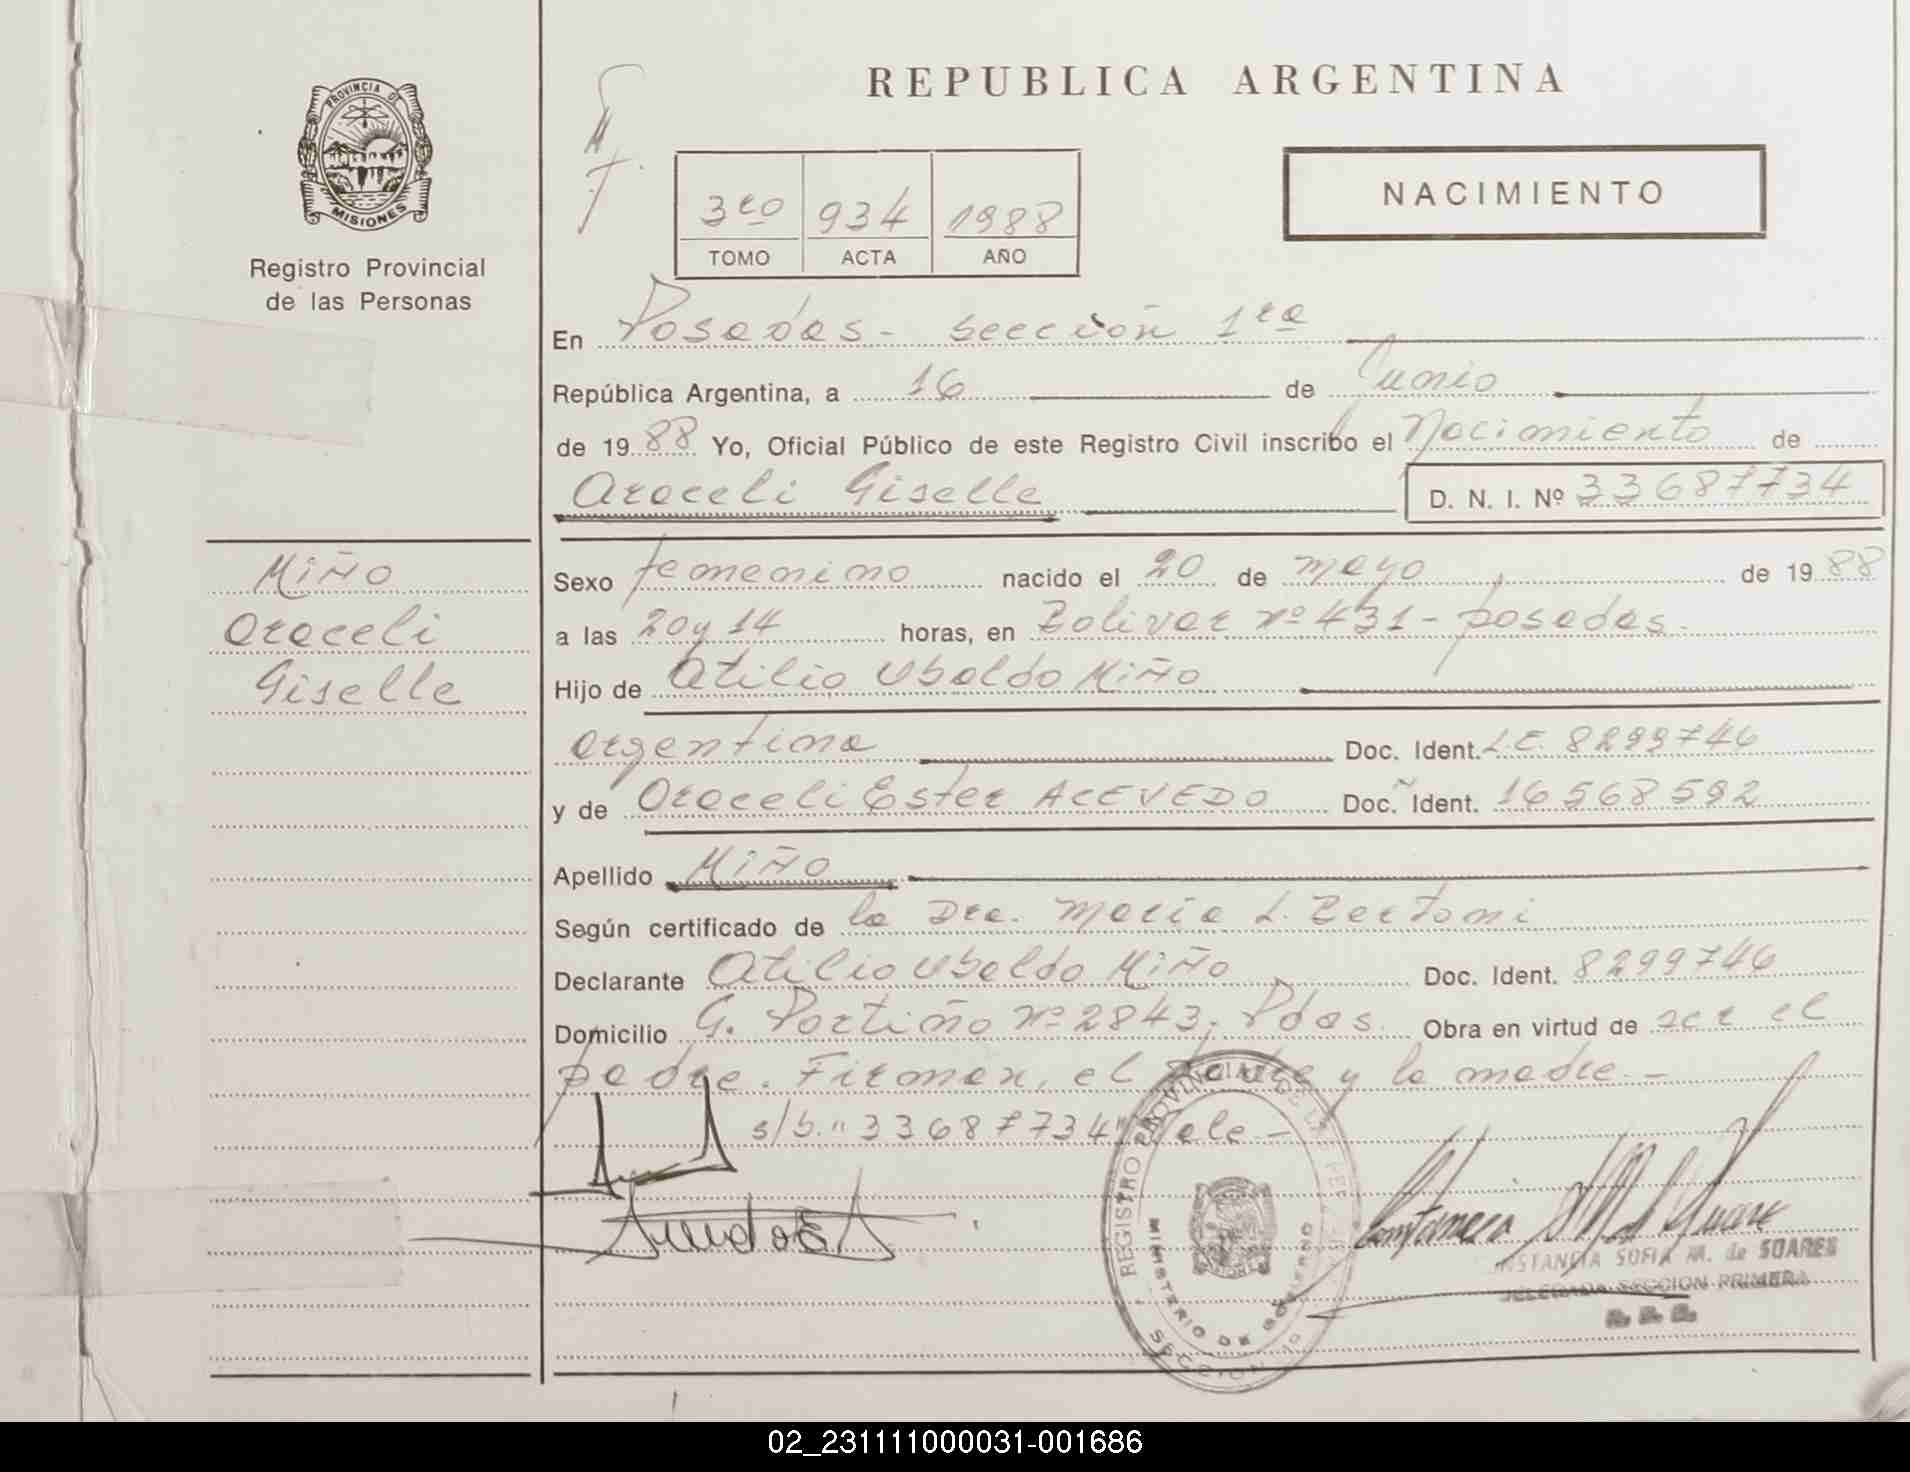 PROVINCIA DE
MISIONES
Registro Provincial
de las Personas
REPUBLICA ARGENTINA
NACIMIENTO
3ro 934 1988
TOMO ACTA AÑO
En Posadas - Sección 1ra
República Argentina, a 16 de Junio
de 1988 Yo, Oficial Público de este Registro Civil inscribo el Nacimiento de
Araceli Giselle D. N. I. Nº 33687734
Miño
Araceli
Giselle
Sexo femenino nacido el 20 de mayo de 1988
a las 20 y 14 horas, en Bolivar nº 431 - posadas.
Hijo de Atilio Ubaldo Miño
argentina Doc. Ident. L.E. 8299746
y de Araceli Ester ACEVEDO Doc. Ident. 16568592
Apellido Miño
Según certificado de la Dra. Maria L. Bertoni
Declarante Atilio Ubaldo Miño Doc. Ident. 8299746
Domicilio G. Portiño nº 2843. Pdas. Obra en virtud de ser el
padre. Firman, el padre y la madre. -
s/b. "33687734" Vale -
REGISTRO PROVINCIAL DE LAS PERSONAS
MINISTERIO DE GOBIERNO
SECCION 1º
Constancia S M de Suarez
NSTANCIA SOFIA M. de SOARES
DELEGADA SECCION PRIMERA
02_231111000031-001686